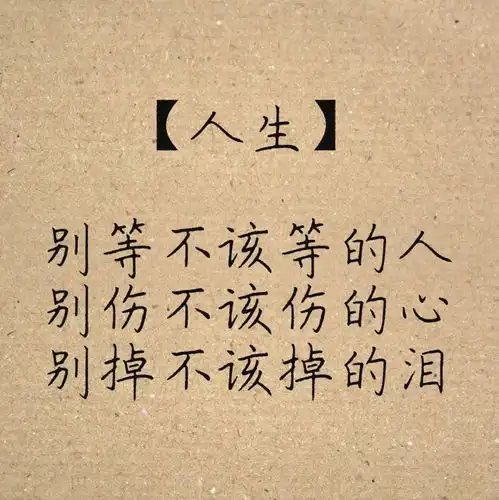 【人生】
别等不该等的人
别伤不该伤的心
别掉不该掉的泪